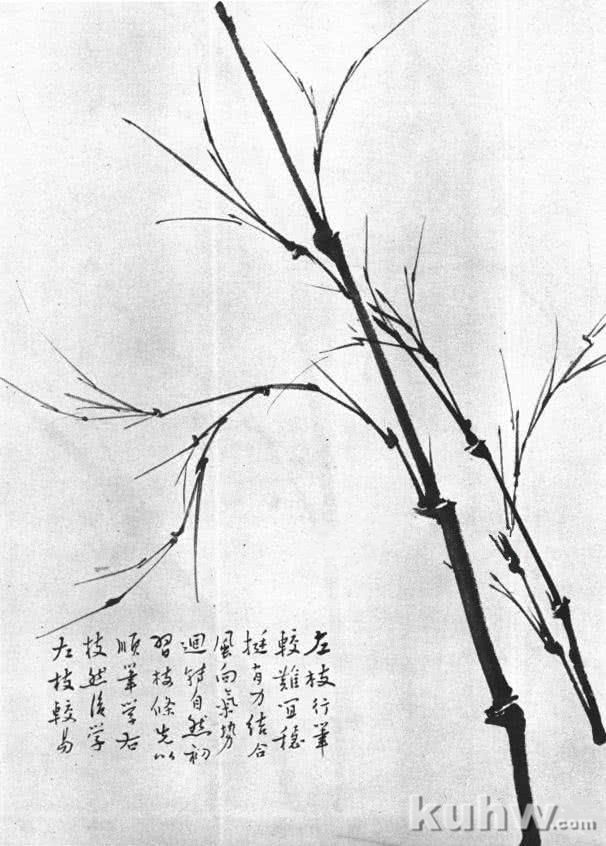 左枝行筆
較難宜穩
挺有力結合
風向氣勢
迴轉自然初
習枝條先以
順筆学右
枝然後学
左枝較易
kuhw.com